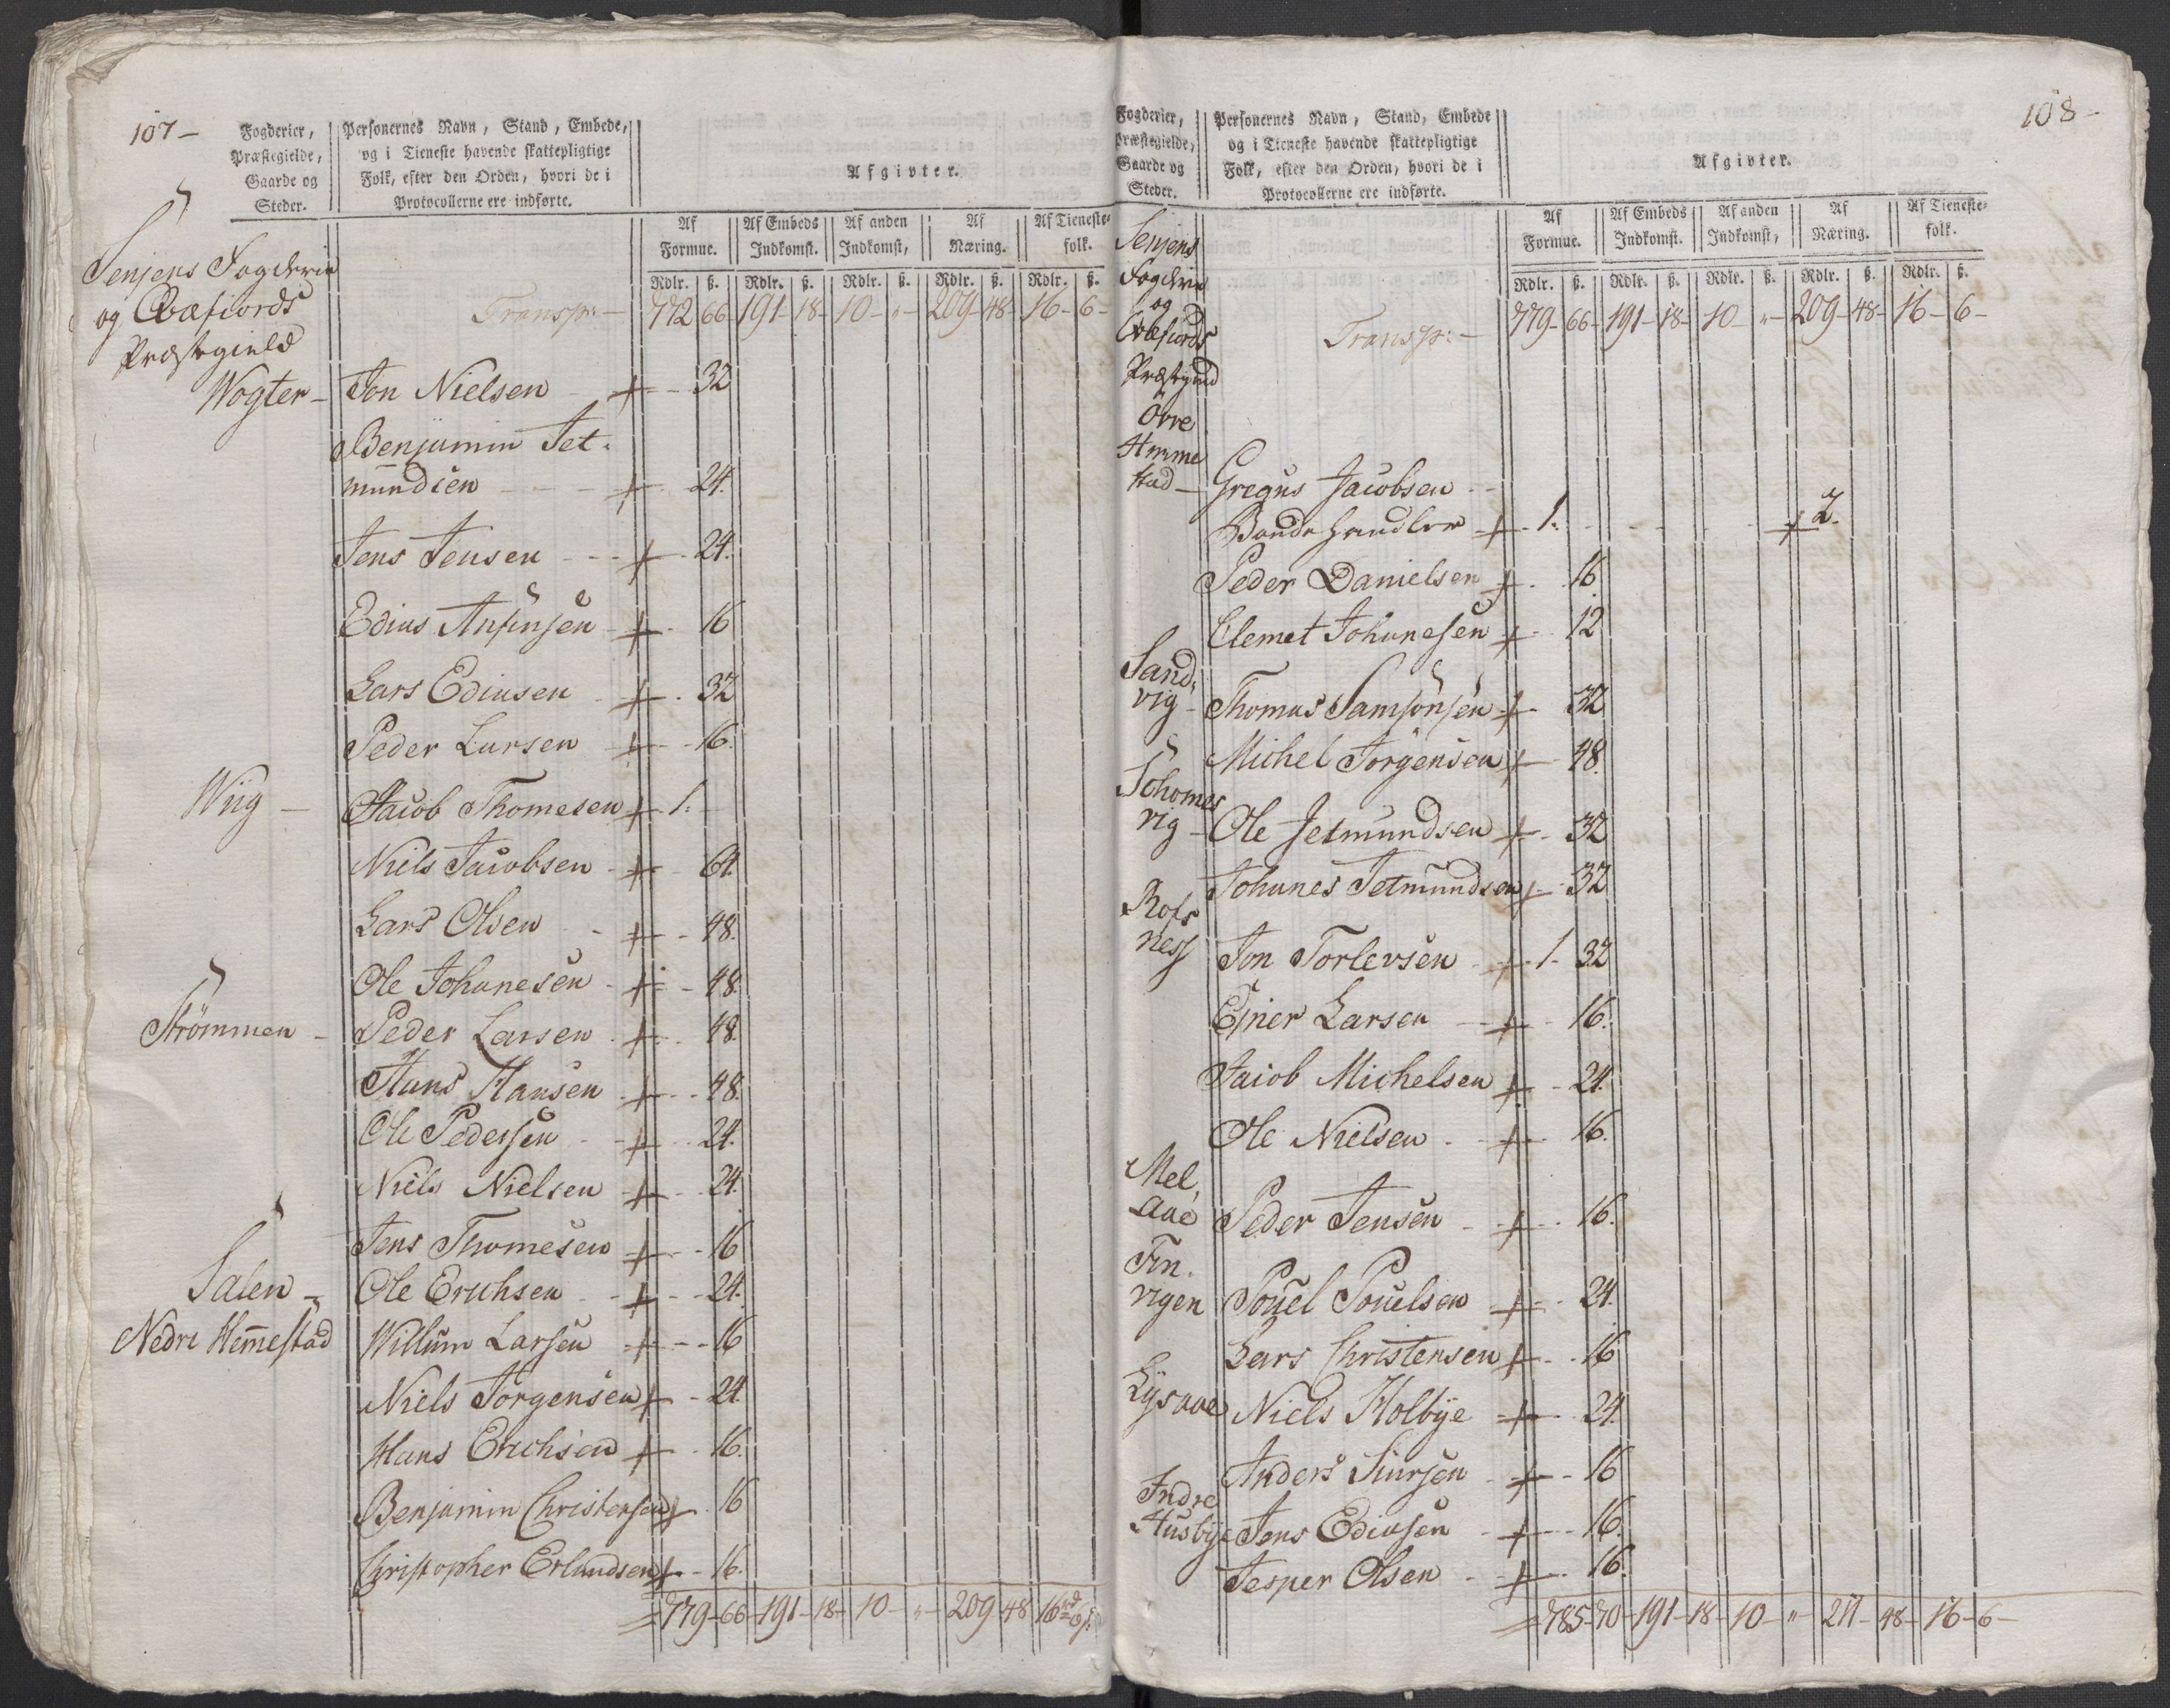 107 –
Fogderier, Præstegielde, Gaarde og Steder.
Personernes Navn, Stand, Embede, og i Tieneste havende skattepligtige Folk, efter den Orden, hvori de i Protocollerne ere indførte.
Afgivter.
Af Formue. Af Embeds Indkomst. Af anden Indkomst, Af Næring. Af Tienestefolk.
Rdlr. ß. Rdlr. ß. Rdlr. ß. Rdlr. ß. Rdlr. ß.
Senjens Fogderie
og Qvæfiords
Præstegield
Transp: – 772 66 191 – 18 – 10 – " – 209 – 48 – 16 – 6 –
Wogter – Jon Nielsen + 32
Benjamin Jet-
mundsen + 24.
Jens Jensen + 24.
Edius Anfinsen + 16
Lars Ediusen + 32
Peder Larsen + 16.
Wiig – Jacob Thomesen + 1. –
Niels Jacobsen + 64.
Lars Olsen + 48.
Ole Johanesen + 48.
Strömmen – Peder Larsen + 48.
Hans Hansen + 48.
Ole Pedersen + 24.
Niels Nielsen + 24.
Jens Thomesen + 16
Salen – Ole Erichsen + 24.
Nedre Hem̅estad Willum Larsen + 16
Niels Jörgensen + 24.
Hans Erichsen + 16.
Benjamin Christensen + 16
Christopher Erlandsen + 16.
= 779 – 66 – 191 – 18 – 10 – " – 209 48 16 rd 6 ß
108 –
Fogderier, Præstegielde, Gaarde og Steder.
Personernes Navn, Stand, Embede og i Tieneste havende skattepligtige Folk, efter den Orden, hvori de i Protocollerne ere indførte.
Afgivter.
Af Formue. Af Embeds Indkomst. Af anden Indkomst, Af Næring. Af Tienestefolk.
Rdlr. ß. Rdlr. ß. Rdlr. ß. Rdlr. ß. Rdlr. ß.
Senjens
Fogderie
og
Qvæfiords
Præstegield
Transp: – 779 – 66 – 191 – 18 – 10 – " – 209 – 48 – 16 – 6 –
Övre
Hemme
stad – Gregus Jacobsen
Bondehandler + 1. + 2.
Peder Danielsen + 16
Clemet Johanesen + 12
Sand-
vig – Thomas Samsonsen + 32
Michel Jörgensen + 48.
Johomes
vig – Ole Jetmundsen + 32
Johanes Jetmundsen + 32
Rols
ness Jon Torlevsen + 1. 32
Ejner Larsen + 16.
Jacob Michelsen + 24.
Ole Nielsen + 16.
Mel
aae Peder Jensen + 16.
Fin
vigen Pouel Pouelsen + 24.
Lars Christensen + 16
Lysaae Niels Holbye + 24.
Anders Siursen + 16
Indre
Husbye Jens Ediusen + 16.
Jesper Olsen + 16.
= 785 – 70 – 191 – 18 – 10 – " – 211 – 48 – 16 – 6 –